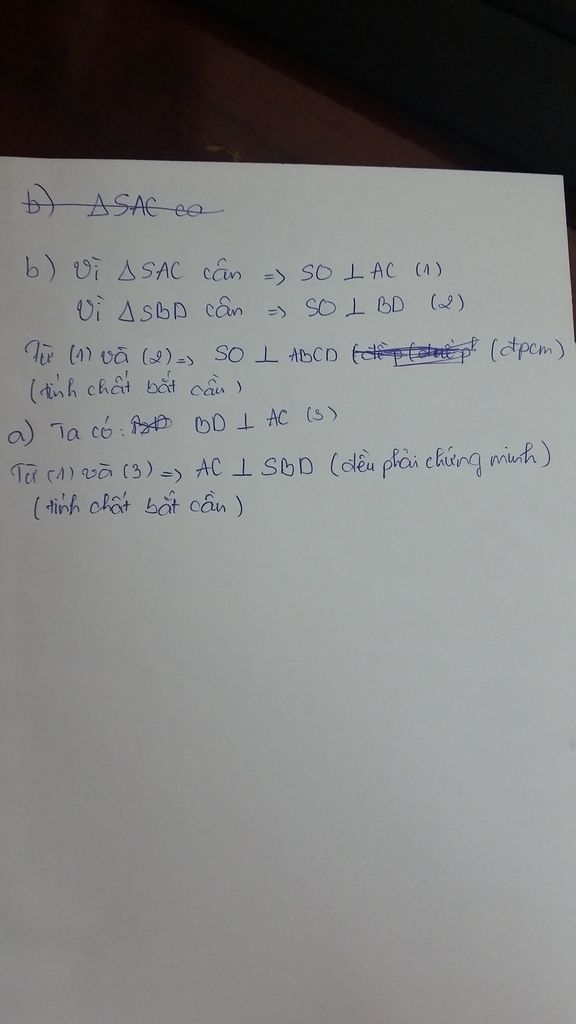 b) ΔSAC co
b) Vì ΔSAC cân => SO ⊥ AC (1)
Vì ΔSBD cân => SO ⊥ BD (2)
Từ (1) và (2) => SO ⊥ ABCD (đpcm)
(tính chất bắt cầu)
a) Ta có: BD ⊥ AC (3)
Từ (1) và (3) => AC ⊥ SBD (đều phải chứng minh)
(tính chất bắt cầu)